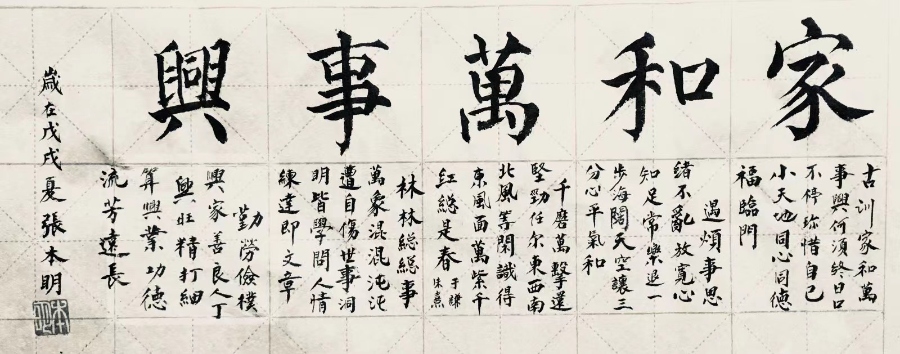 家和萬事興
古訓家和萬
事興何須終日口
不停珍惜自己
小天地同心同德
福臨門
遇煩事思
緒不亂放寬心
知足常樂退一
步海闊天空讓三
分心平氣和
千磨萬擊還
堅勁任尔東西南
北風等閑識得
東風面萬紫千
紅總是春
于謙
朱熹
林林總總事
萬象混混沌沌
遭自傷世事洞
明皆學問人情
練達即文章
勤勞儉樸
興家善良人丁
興旺精打細
算興業功德
流芳遠長
歲在戊戌夏張本明